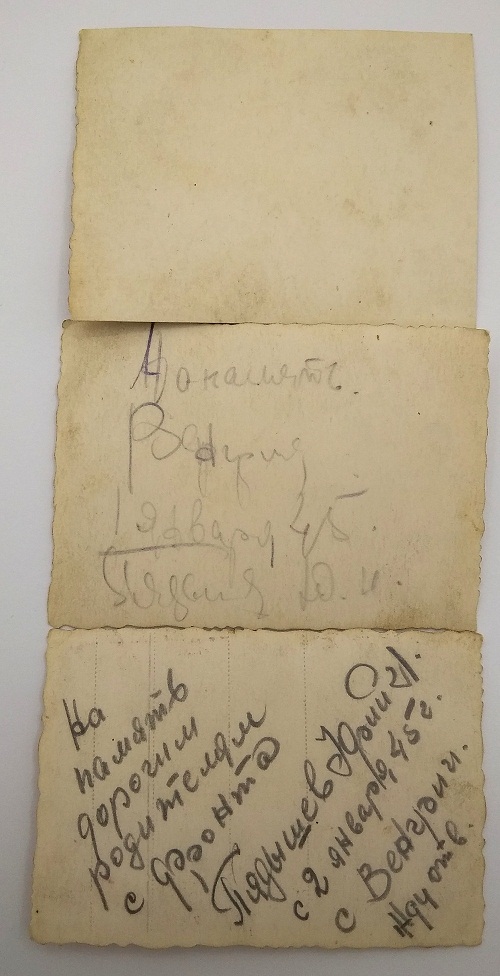 На память.
Венгрия
1 января, 45.
Ю. И.
на
память
дорогим
родителям
с фронта
Пядышев Юрий
с 2 января, 45 г.
с Венгрии.
жду отв.